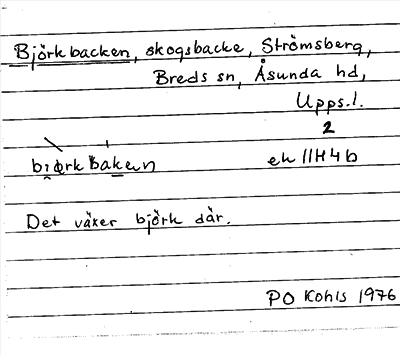 Björkbacken, skogsbacke, Strömsberg,
Breds sn, Åsunda hd,
Upps.l.
2
ek 11H4b
Det växer björk där.
PO Kohls 1976